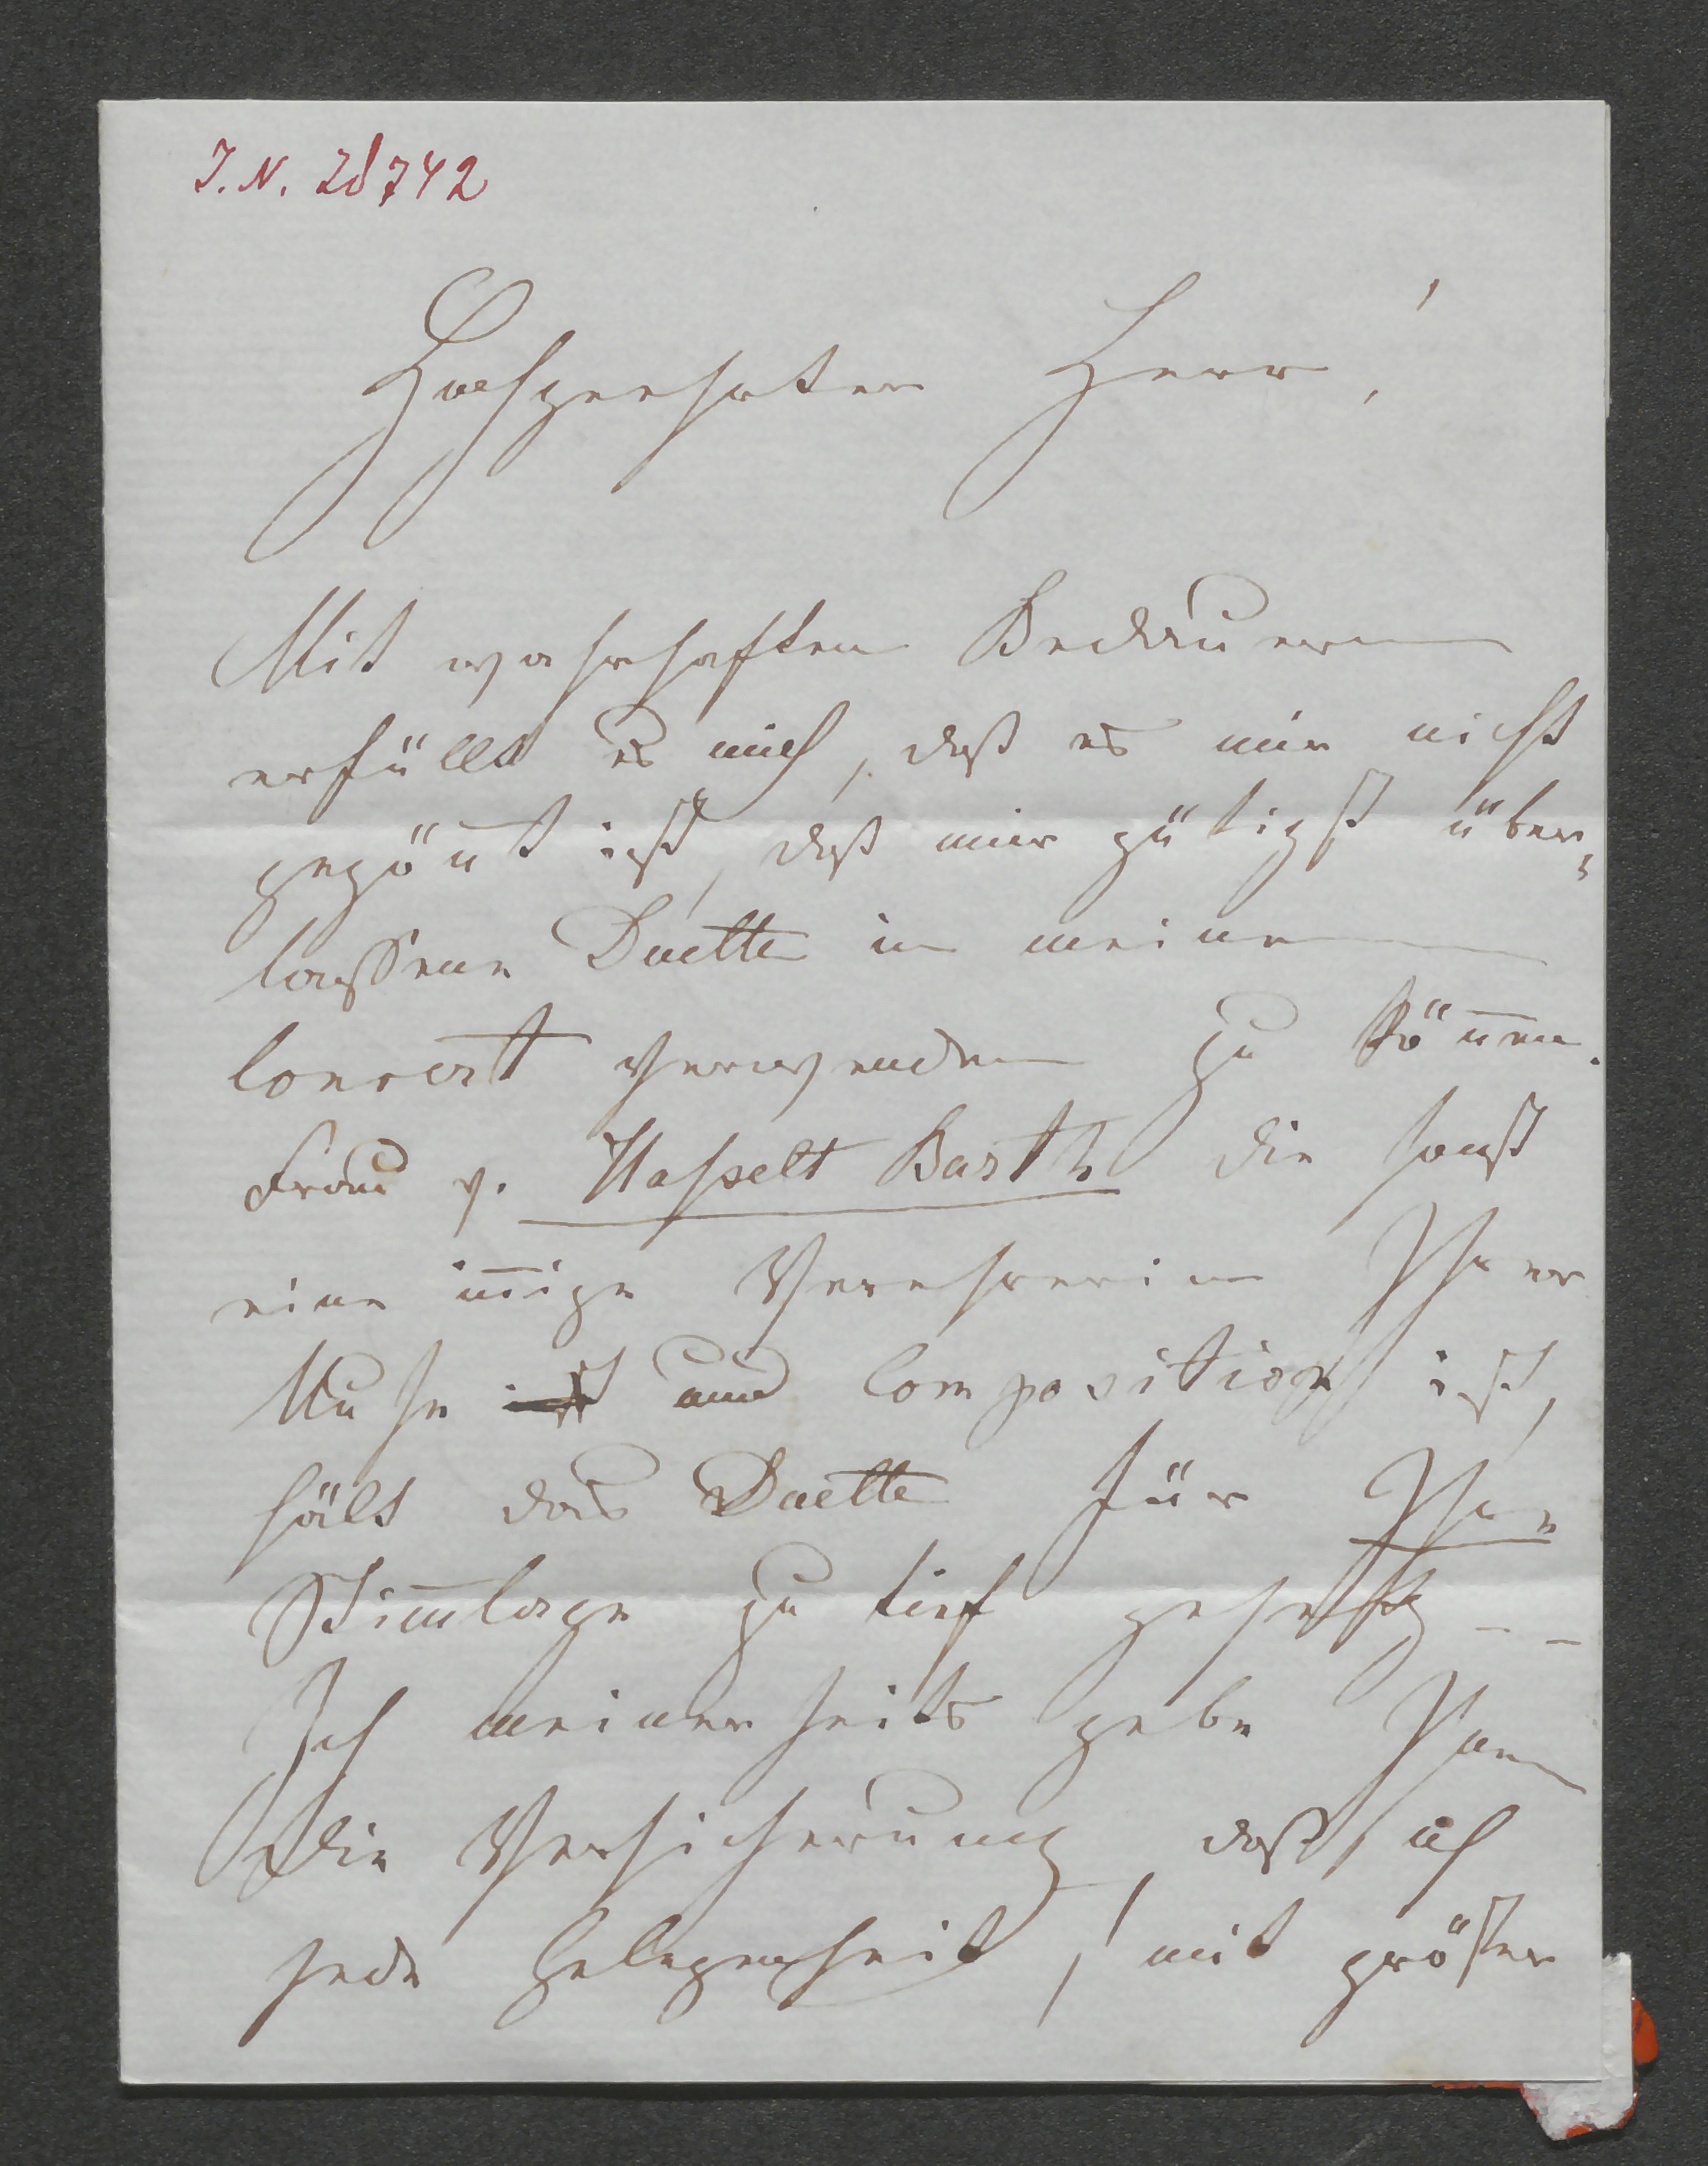 J.N. 28742
Hochgeehrter Herr!
Mit wahrhaften Bedauern
erfüllt es mich, daß es mir nicht
gegön̄t ist, daß mir gütigst über-
lassene Duette in meinem
Concert verwenden zu kön̄en.
Frau v. Hasselt Barth die sonst
eine in̄ige Verehrerin Ihrer
Muse ist und Composition ist,
hält das Duette für Ihre
Stim̄lage zu tief gesetzt --
Ich meinerseits gebe Ihnen
die Versicherung, daß ich
jede Gelegenheit, mit größter